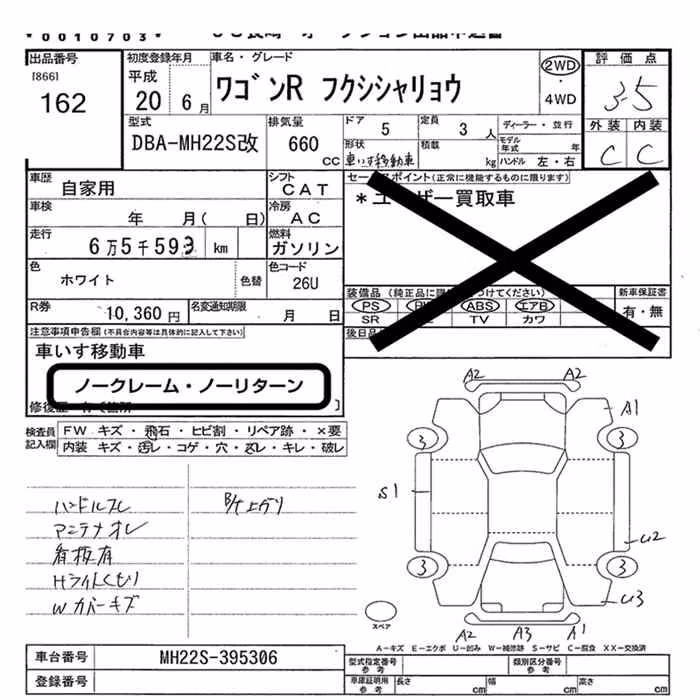 0010703
出品番号
[866]
162
初度登録年月
平成
20 6 月
車名・グレード
ワゴンR フクシシャリョウ
2WD
・
4WD
評価点
3.5
外装 内装
C C
型式
DBA-MH22S改
排気量
660
cc
ドア 5
定員 3 人
形状
車いす移動車
積載 kg
ディーラー・並行
モデル
年式 年
ハンドル 左・右
車歴 自家用
シフト
CAT
車検 年 月( 日)
冷房
AC
走行
6万5千593 km
燃料
ガソリン
色
ホワイト
色替
色コード
26U
R券
10,360 円
名変通知期限
月 日
セールスポイント(正常に機能するものに限ります)
*ユーザー買取車
装備品
PS ABS エアB
SR TV カワ
新車保証書
有・無
注意事項申告欄(不具合内容等は具体的に記入して下さい)
車いす移動車
ノークレーム・ノーリターン
検査員
記入欄
FW キズ・飛石・ヒビ割・リペア跡・×要
内装 キズ・汚レ・コゲ・穴・スレ・キレ・破レ
ハンドルスレ
アンテナオレ
看板有
Hライトくもり
Wカバーキズ
A2 A2
A1
3 3
S1
U2
3 3
U3
A2 A3 A1
スペア
A-キズ E-エクボ U-凹み W-補修跡 S-サビ C-腐食 XX-交換済
車台番号 MH22S-395306
登録番号
型式指定番号
参考
類別区分番号
参考
車庫証明用
参考
長さ cm 幅 cm 高さ cm